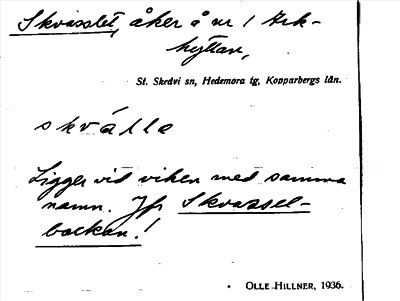 Skvasslet, åker å nr 1 Ark-
hyttan,
St. Skedvi sn, Hedemora tg, Kopparbergs län.
skválle
Ligger vid viken med samma
namn. Jfr Skvassel-
backan!
OLLE HILLNER, 1936.